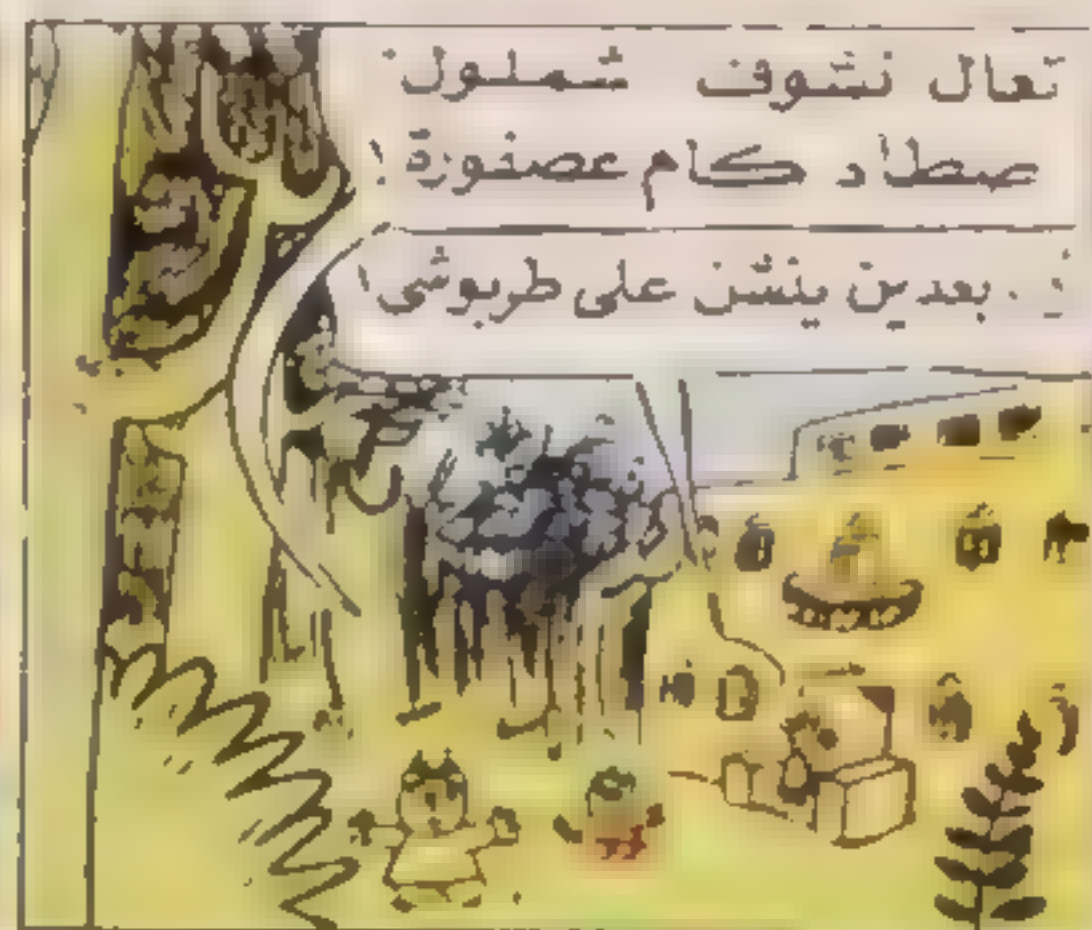 تعال نشوف شملول
صطاد كام عصفورة!
.. بعدين ينشن على طربوشى!